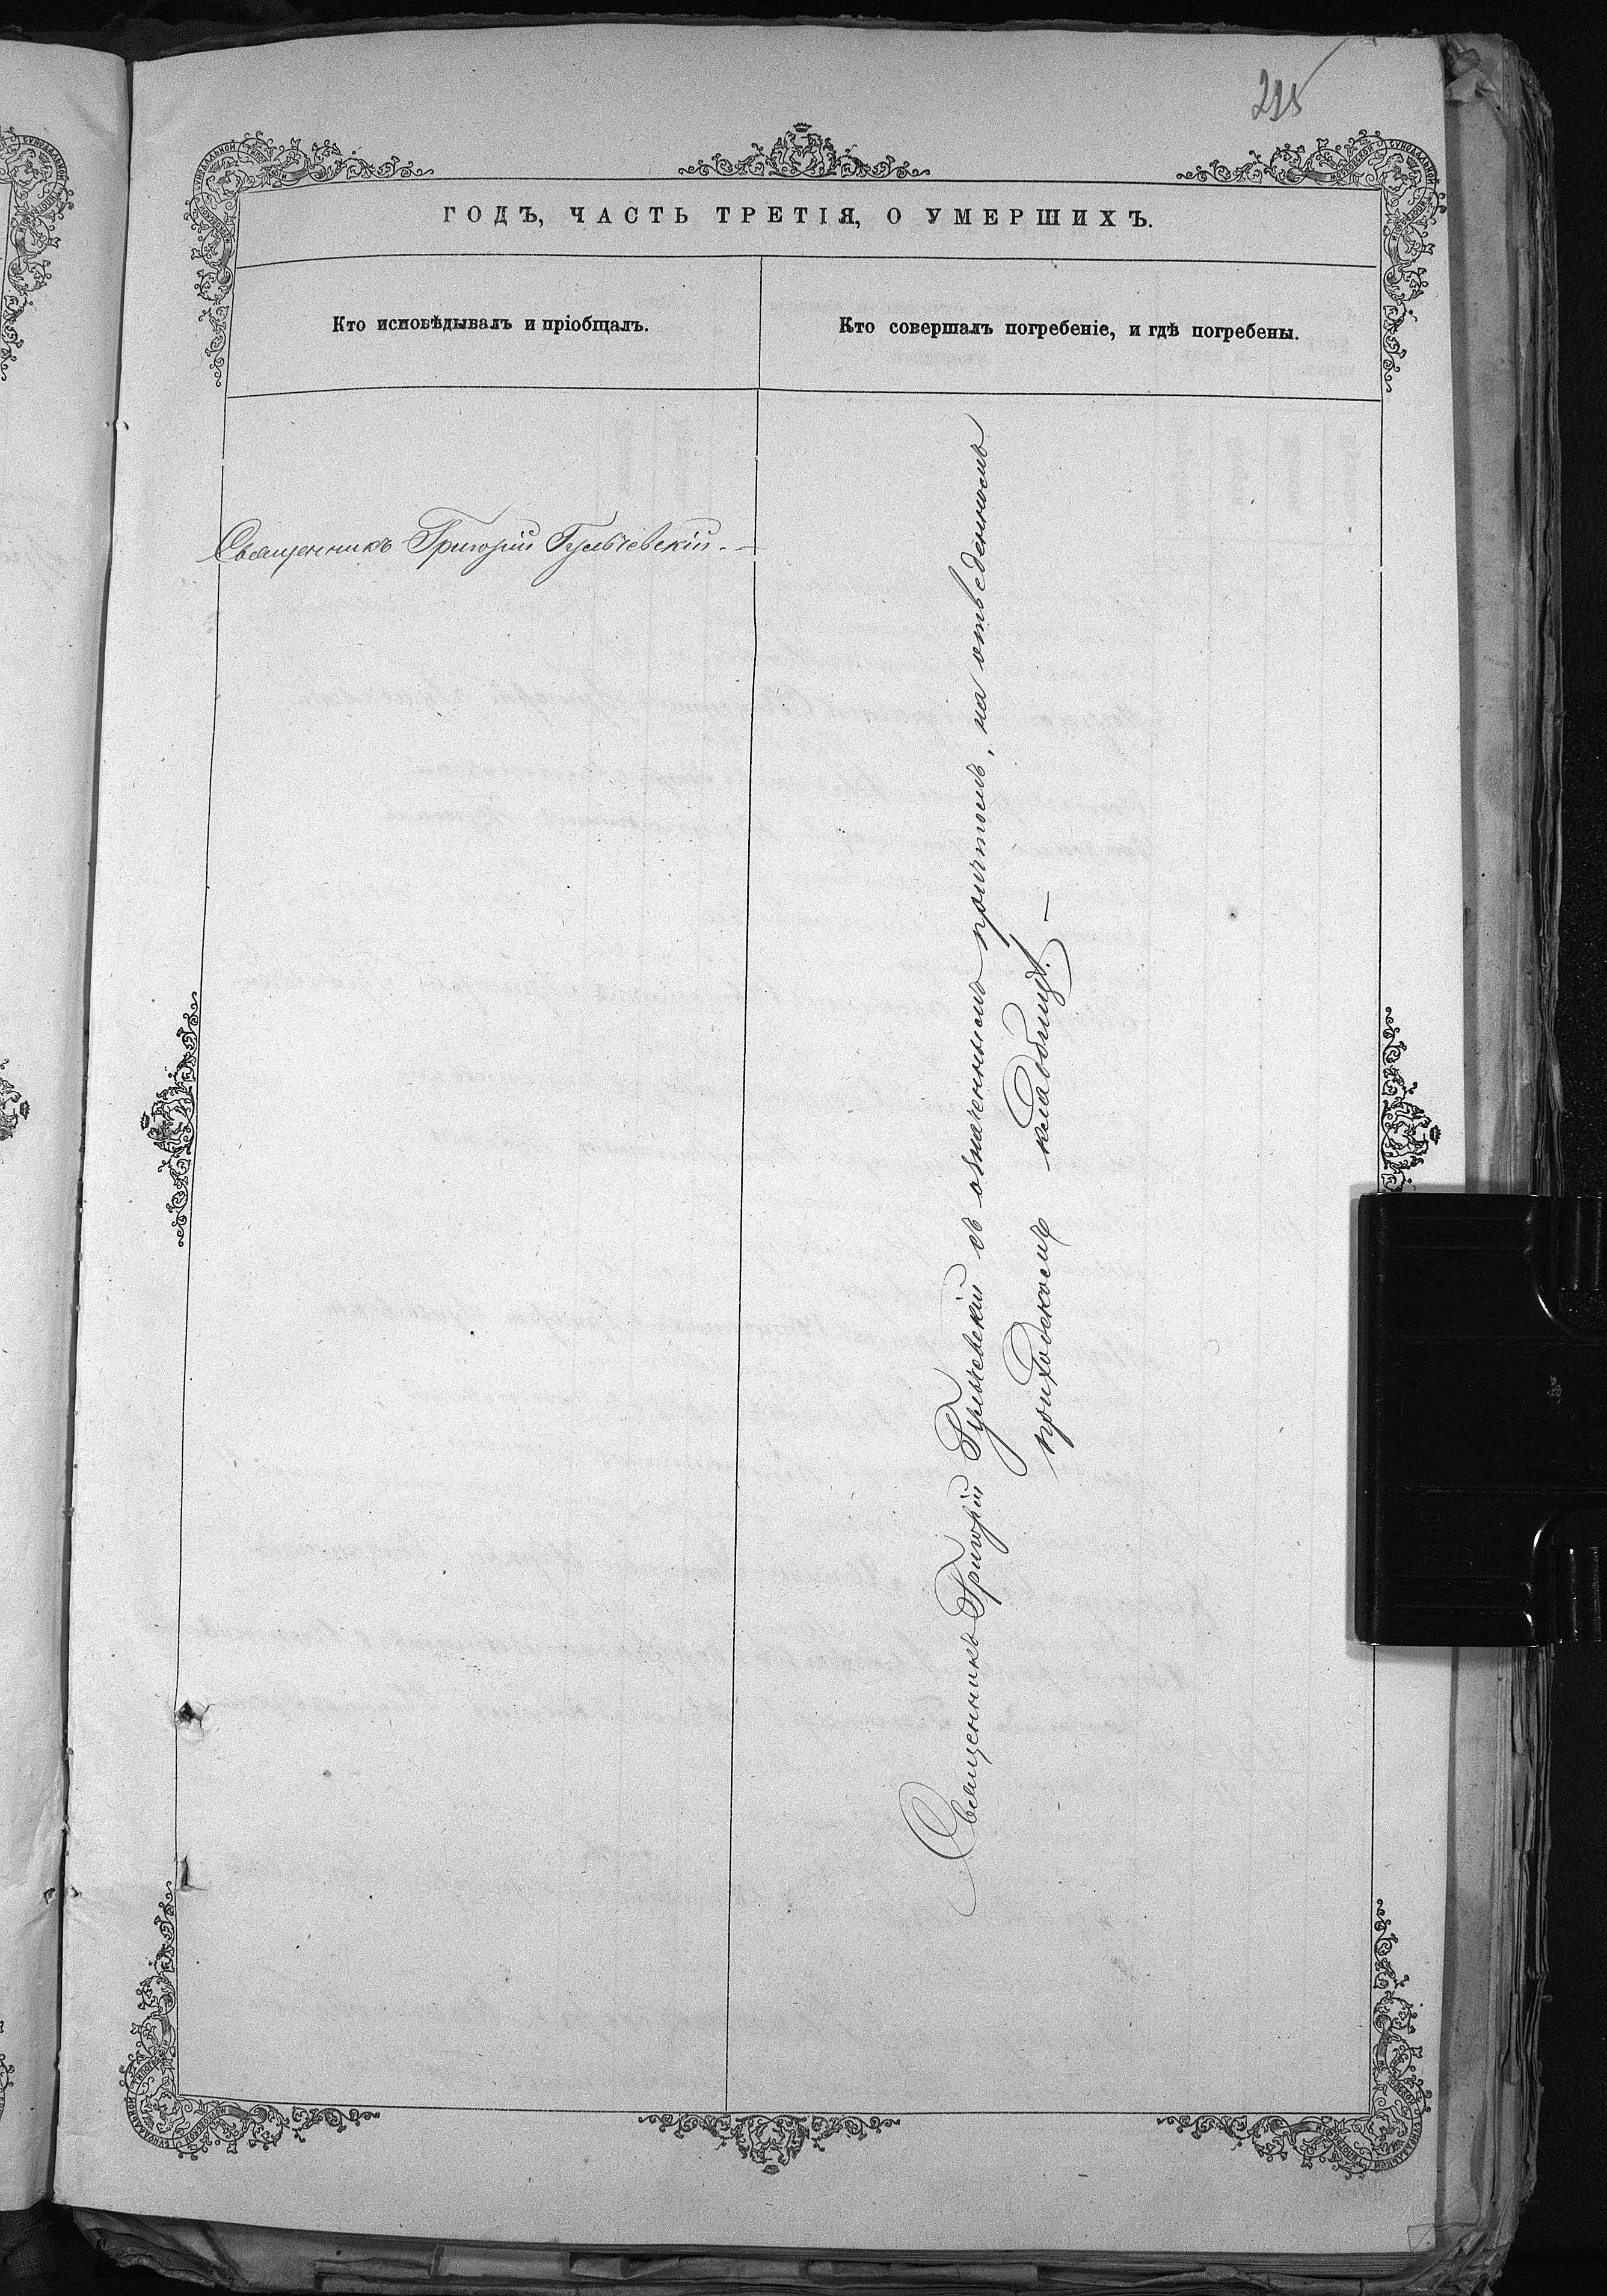 215
ГОДЪ, ЧАСТЬ ТРЕТІЯ, О УМЕРШИХЪ.
Кто исповѣдывалъ и пріобщалъ.
Кто совершалъ погребеніе, и гдѣ погребены.
Священникъ Григорій Гульчевскій.
Священникъ Григорій Гульчевскій съ означеннымъ причтомъ, на отведенномъ
приходскомъ кладбищѣ. —